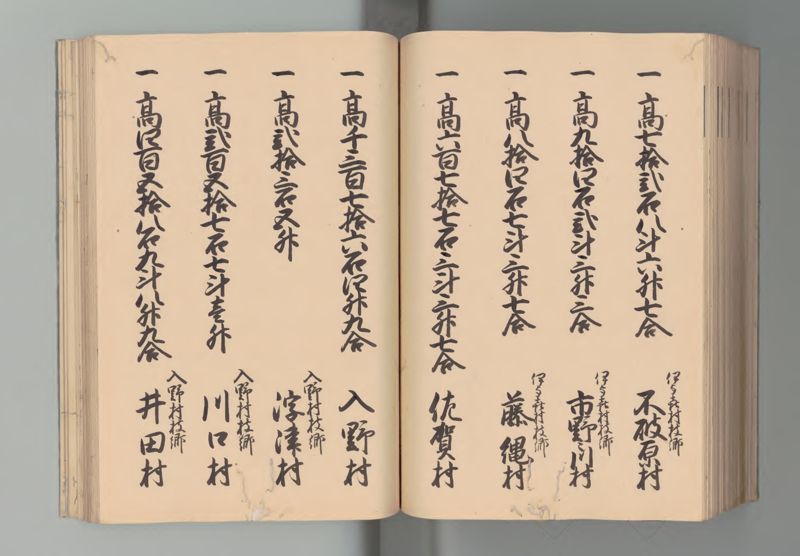 一 高七拾弐石八斗六升七合
伊与喜村枝郷
不破原村
一 高九拾四石弐斗三升三合
伊与喜村枝郷
市野々川村
一 高八拾四石七斗三升七合
伊与喜村枝郷
藤縄村
一 高六百七拾七石三斗三升七合
佐賀村
一 高千三百七拾六石四升九合
入野村
一 高弐拾三石五升
入野村枝郷
浮津村
一 高弐百五拾七石七斗壱升
入野村枝郷
川口村
一 高四百五拾八石九斗八升九合
入野村枝郷
井田村